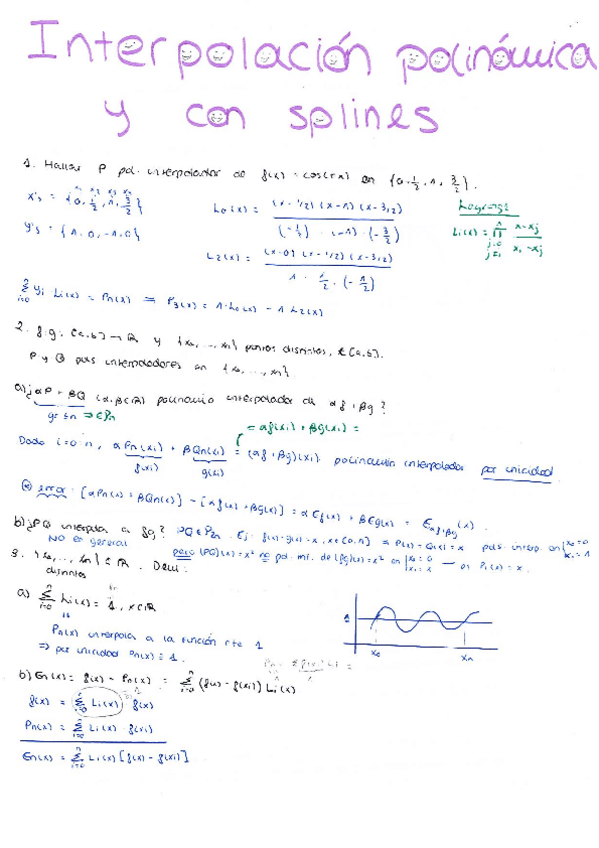 Interpolación polinómica
y con splines
1. Hallar P pol. interpolador de f(x) = cos(πx) en {0, 1/2, 1, 3/2}.
x's = {0, 1/2, 1, 3/2}
y's = {1, 0, -1, 0}
L₀(x) = (x-1/2)(x-1)(x-3/2) / (-1/2)·(-1)·(-3/2)
L₂(x) = (x-0)(x-1/2)(x-3/2) / 1·1/2·(-1/2)
Lagrange
Li(x) = ∏ x-xj / xi-xj
∑ yi Li(x) = Pn(x) ⇒ P₃(x) = 1·L₀(x) - 1 L₂(x)
2. f,g: [a,b] → ℝ y {x₀, ..., xn} puntos distintos, ∈ [a,b].
P y Q pols interpoladores en {x₀, ..., xn}.
a) ¿αP + βQ (α,β∈ℝ) polinomio interpolador de αf + βg?
gr ≤ n ⇒ ∈ Pn
= αf(xi) + βg(xi) =
Dado i=0:n, αPn(xi) + βQn(xi) = (αf+βg)(xi). polinomio interpolador por unicidad
f(xi) g(xi)
error: [αPn(x) + βQn(x)] - [αf(x) + βg(x)] = αEf(x) + βEg(x) = Eαf+βg(x).
b) ¿PQ interpola a fg? PQ∈P₂n. Ej: f(x)=g(x)=x, x∈[0,1] ⇒ P(x)=Q(x)=x pols. interp. en {x₀=0 x₁=1
NO en general
pero (PQ)(x)=x² no pol. int. de (fg)(x)=x² en {x₀=0 x₁=1 P₁(x)=x.
3. {x₀, ..., xn} ⊆ ℝ. Dem:
distintos
a) ∑ Li(x) = 1, x∈ℝ
Pn(x) interpola a la función cte 1
⇒ por unicidad Pn(x) = 1.
1
x₀ xn
b) En(x) = f(x) - Pn(x) = ∑ (f(x) - f(xi)) Li(x)
f(x) = ∑ Li(x) f(x)
Pn(x) = ∑ Li(x)·f(xi)
En(x) = ∑ Li(x) [f(x) - f(xi)]